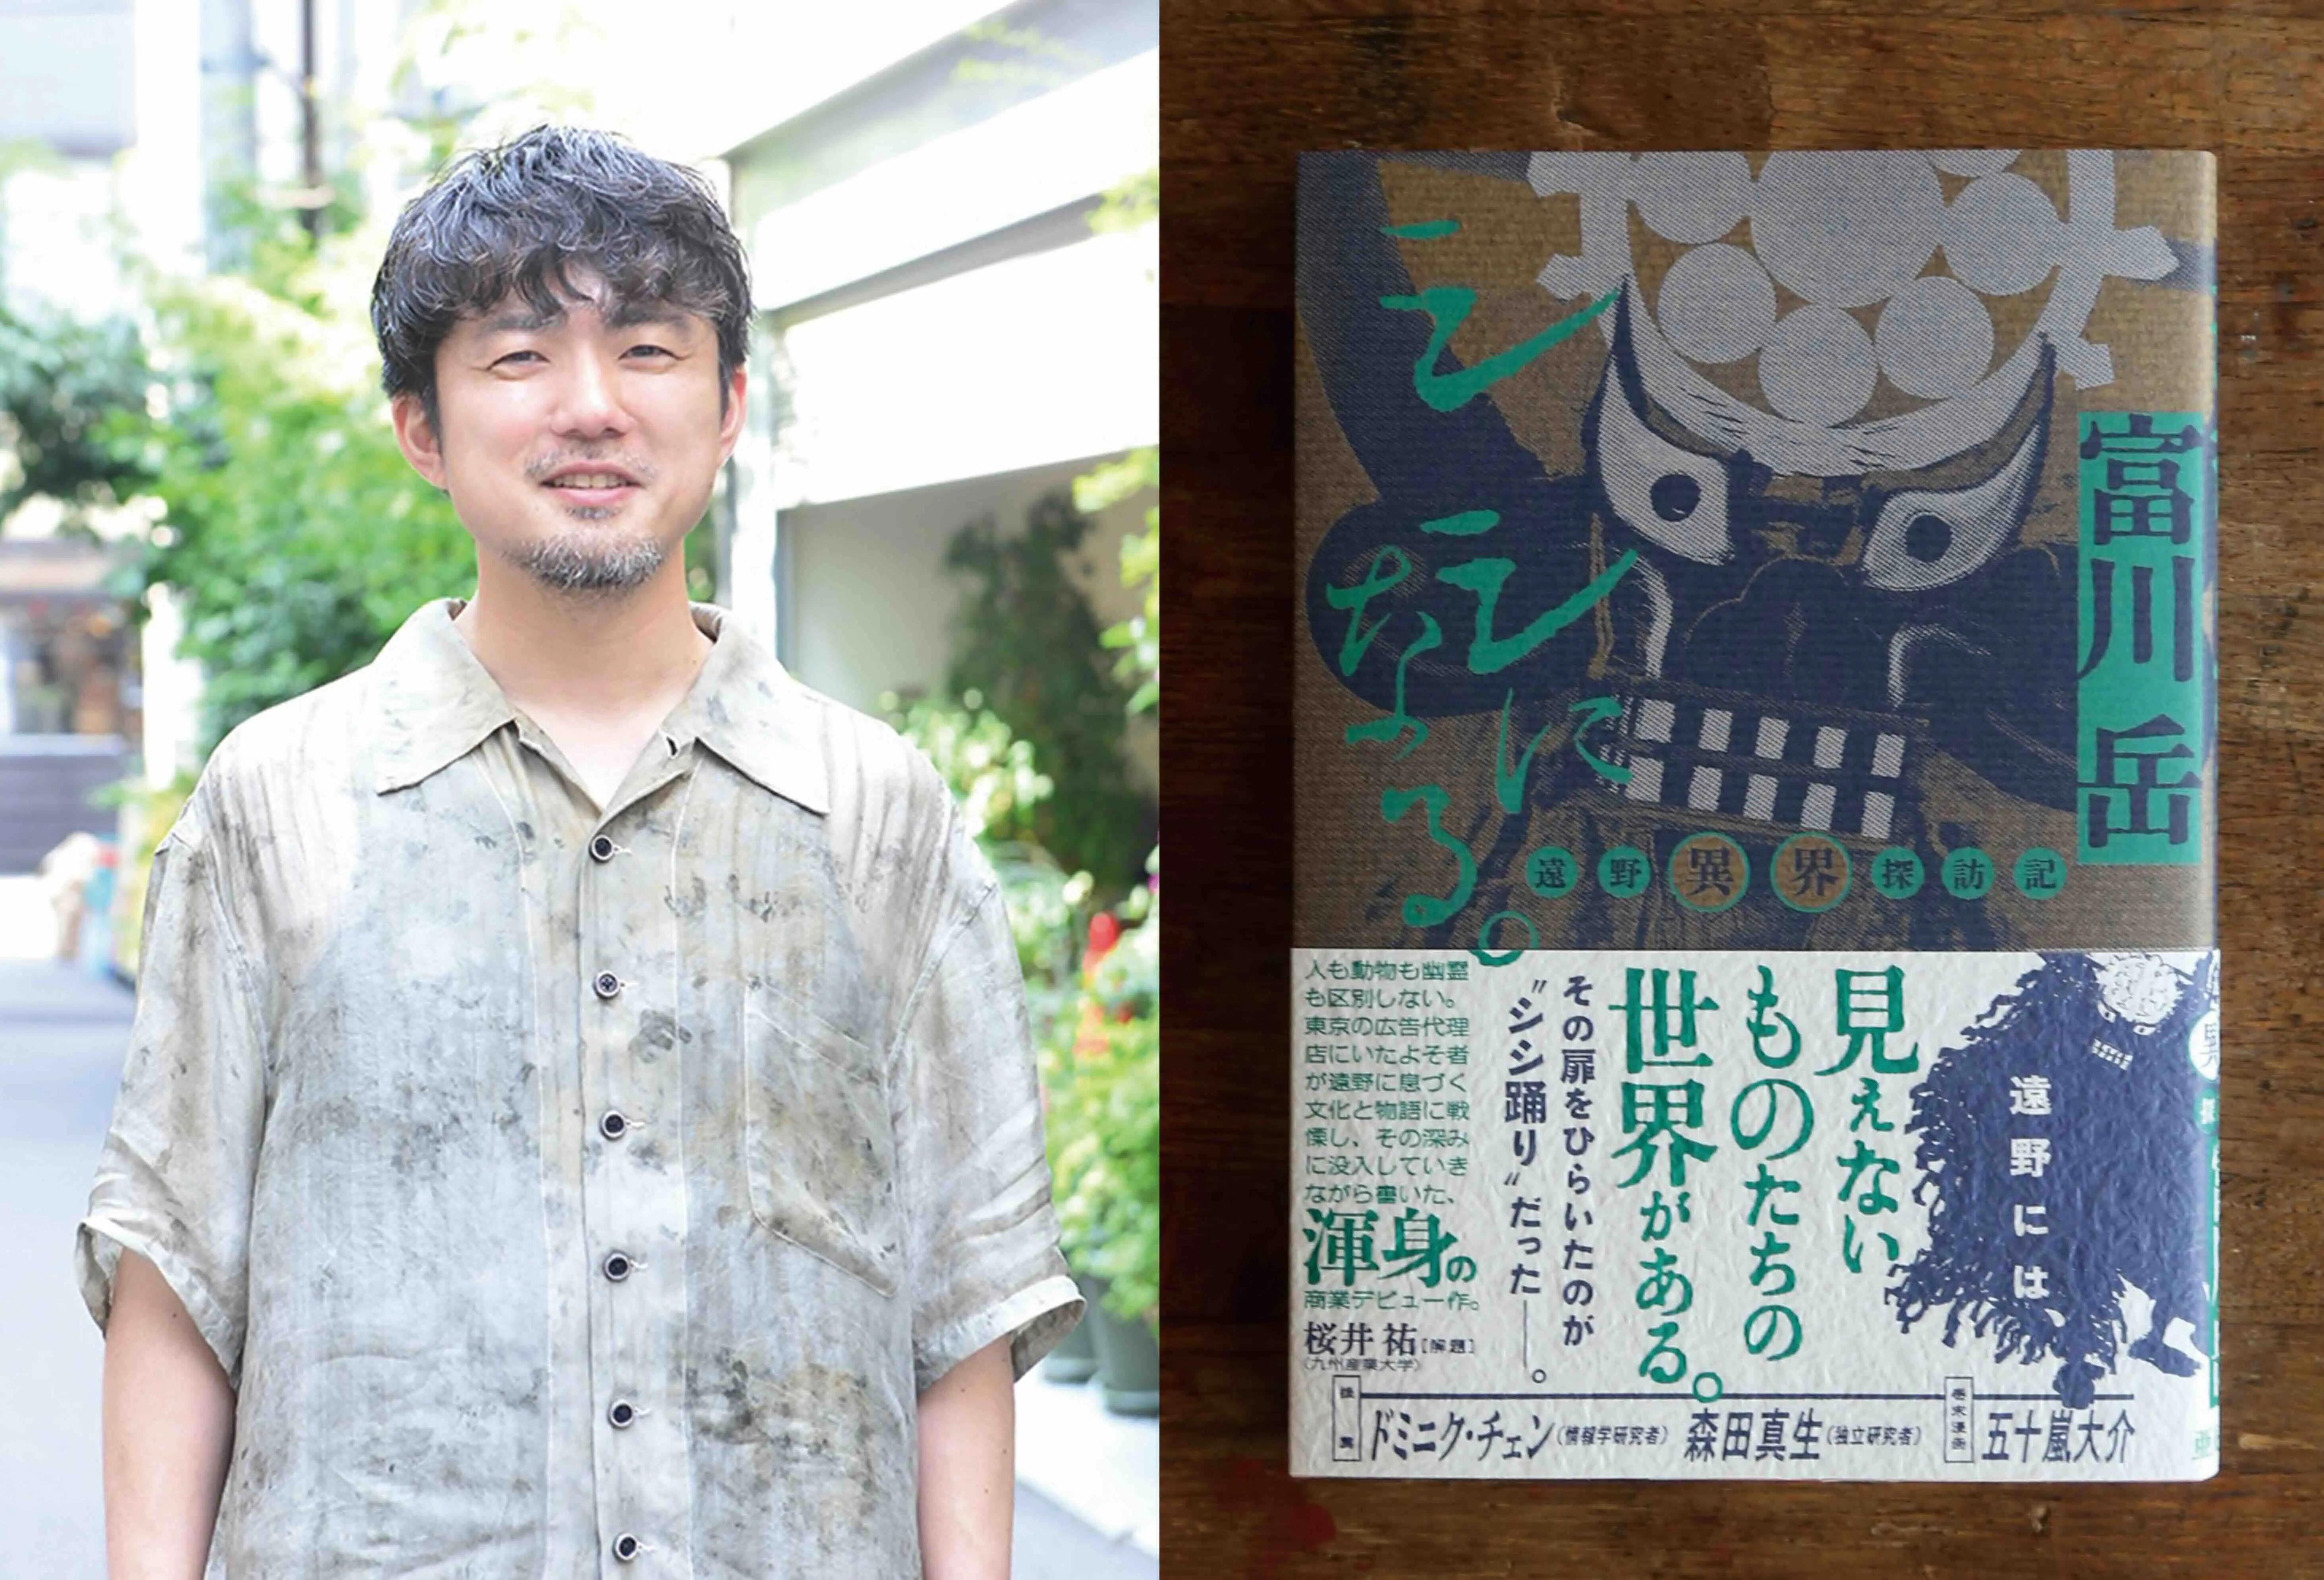 シシに
なる。
遠野異界探訪記
富川岳
遠野には
見えない
ものたちの
世界がある。
その扉をひらいたのが
〝シシ踊り〟だった――。
人も動物も幽霊
も区別しない。
東京の広告代理
店にいたよそ者
が遠野に息づく
文化と物語に戦
慄し、その深み
に没入していき
ながら書いた、
渾身の
商業デビュー作。
桜井祐[解題]
(九州産業大学)
推薦 ドミニク・チェン(情報学研究者) 森田真生(独立研究者) 巻末漫画 五十嵐大介